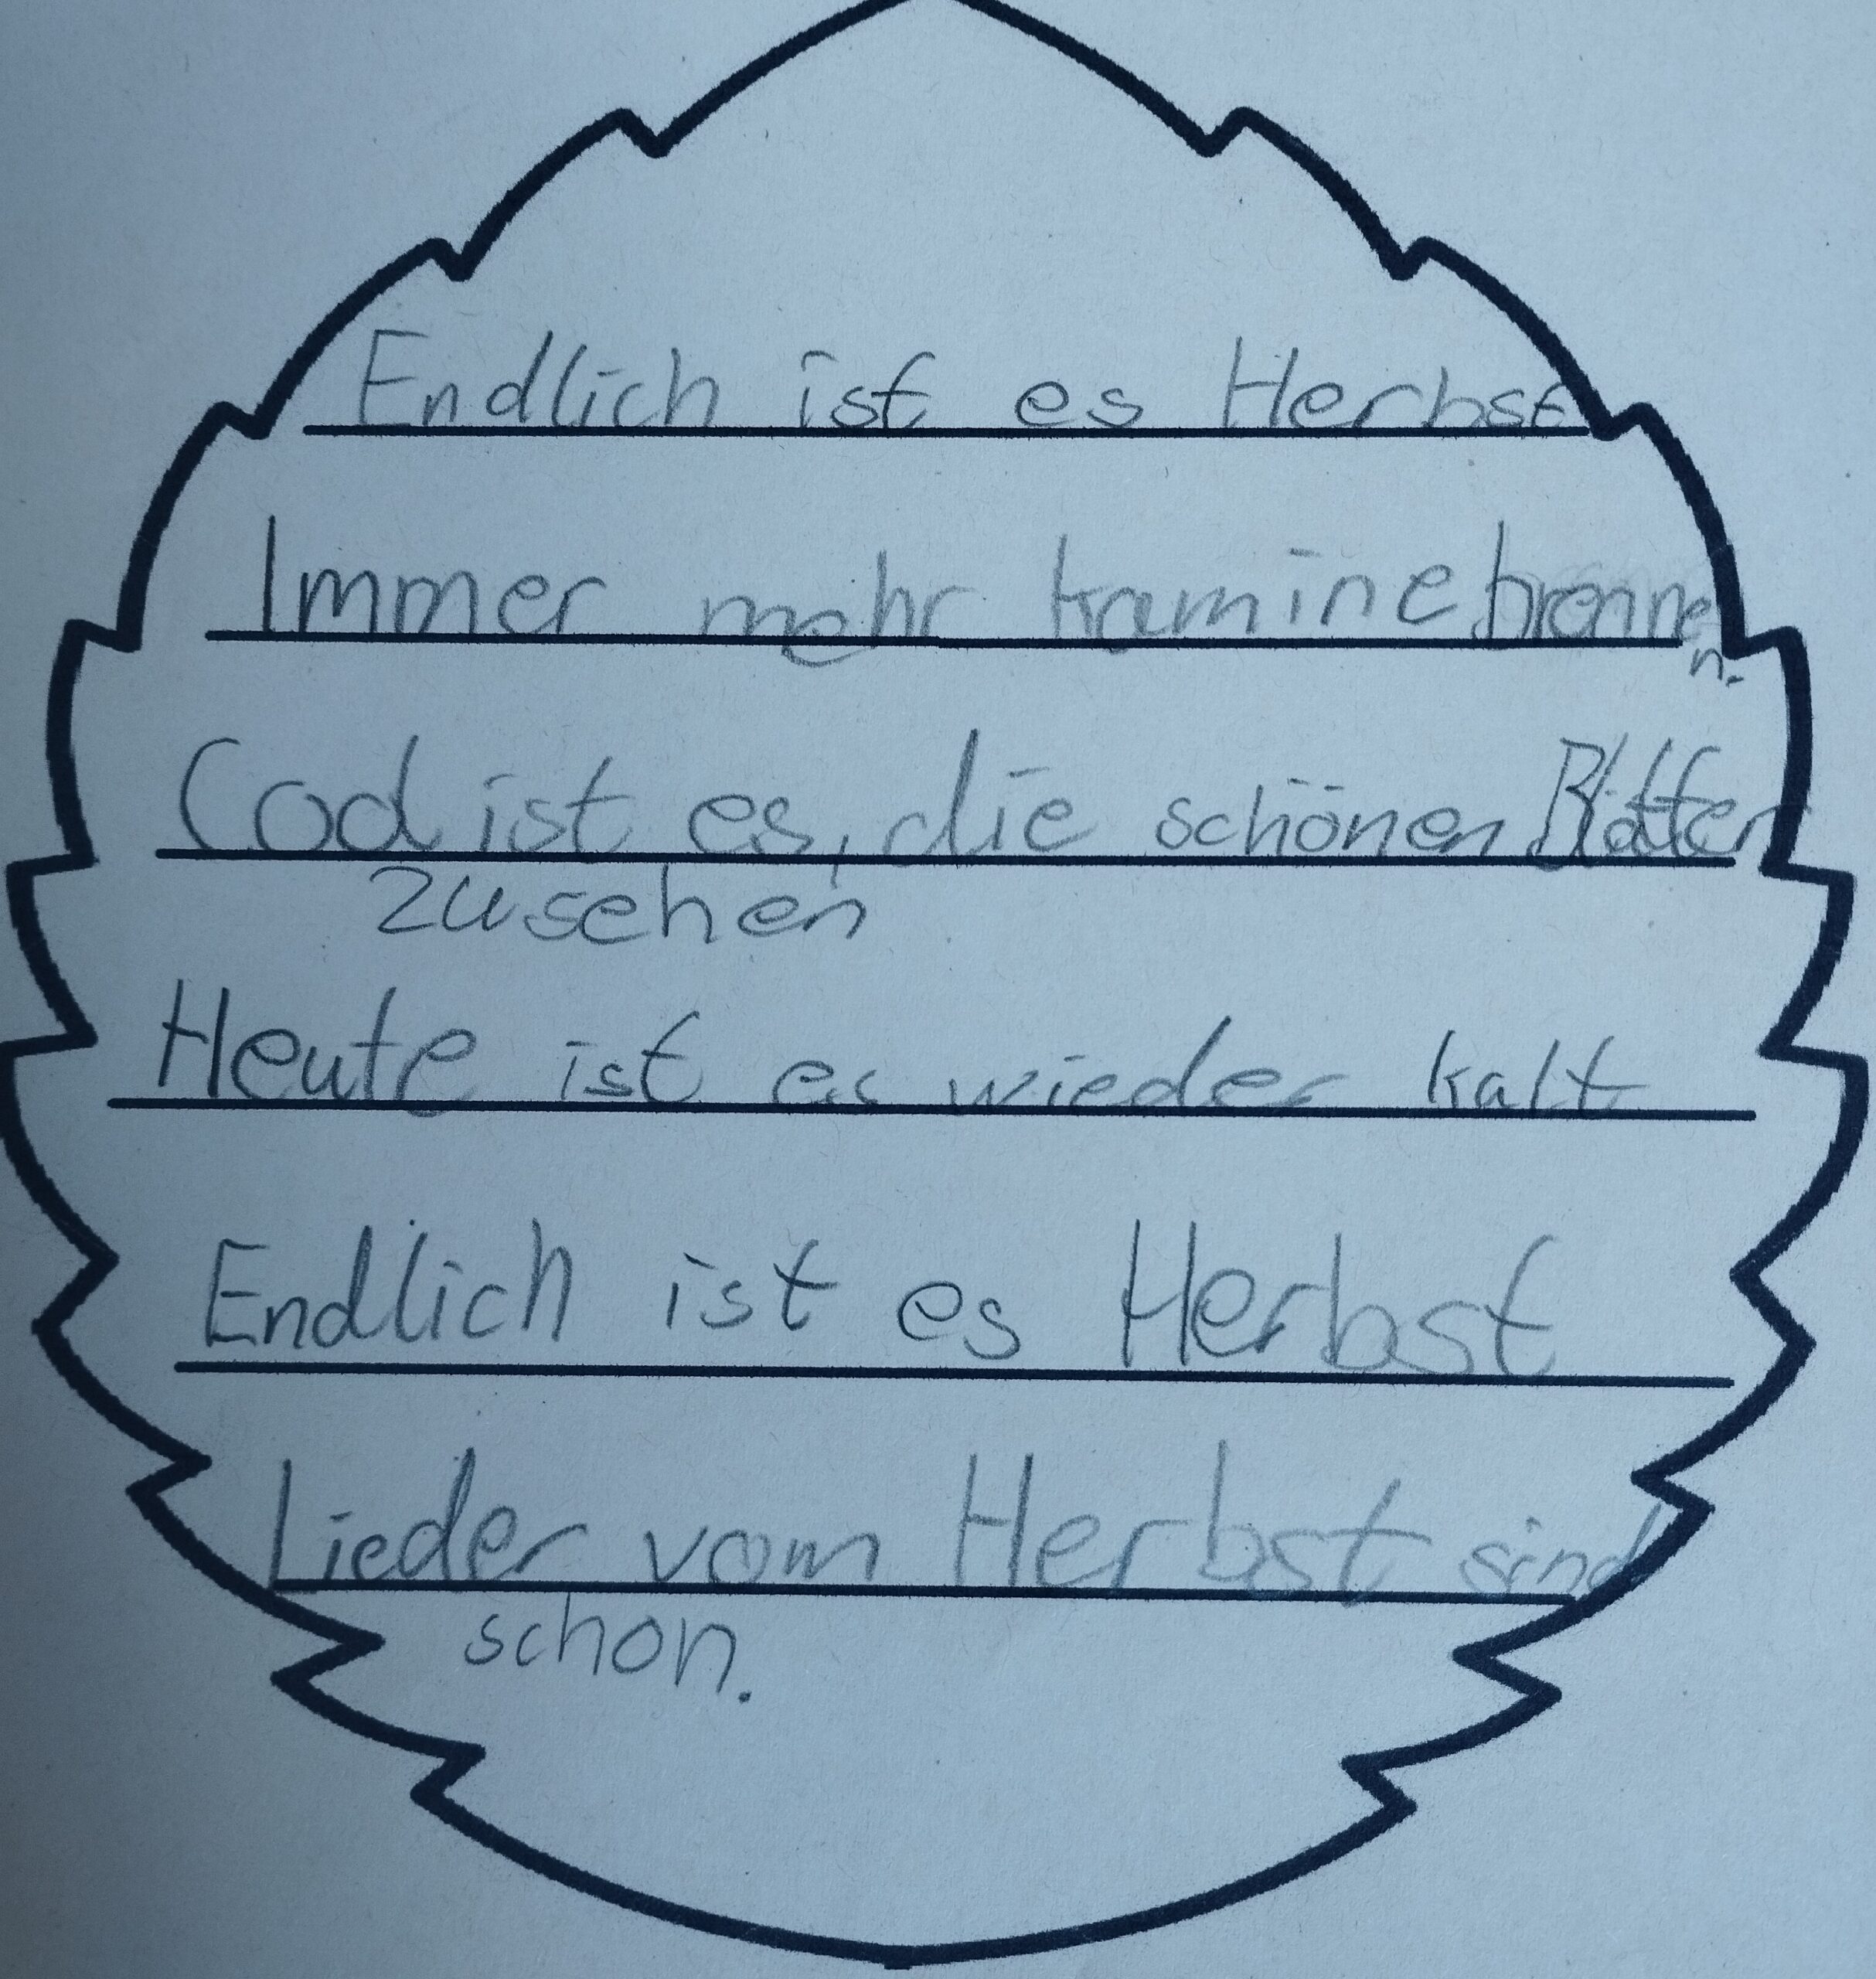 Endlich ist es Herbst
Immer mehr kamine brenne
n.
Cool ist es, die schönen Blätter
zusehen
Heute ist es wieder kalt
Endlich ist es Herbst
Lieder vom Herbst sind
schon.